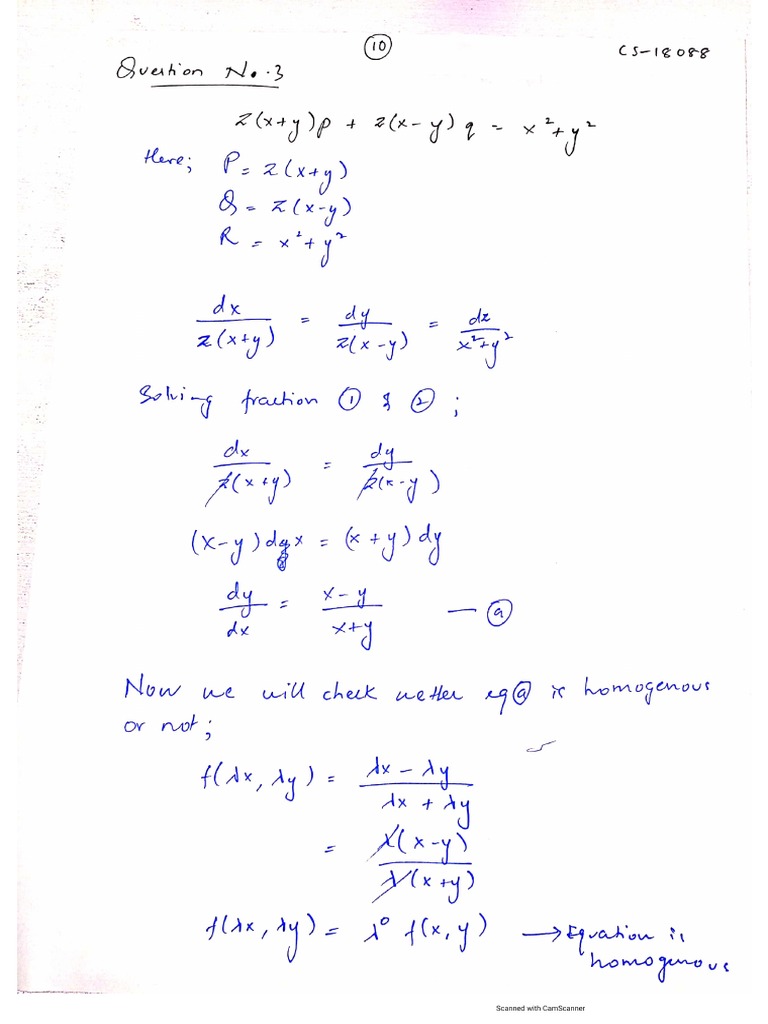 ⑩
CS-18088
Question No.3
z(x+y)p + z(x-y)q = x²+y²
Here; P = z(x+y)
Q = z(x-y)
R = x²+y²
dx/z(x+y) = dy/z(x-y) = dz/x²+y²
Solving fraction ① & ②;
dx/z(x+y) = dy/z(x-y)
(x-y)dx = (x+y)dy
dy/dx = x-y/x+y — ⓐ
Now we will check wetter eqⓐ is homogenous
or not;
f(λx, λy) = λx - λy/λx + λy
= λ(x-y)/λ(x+y)
f(λx, λy) = λ⁰ f(x,y) → Equation is
homogenous
Scanned with CamScanner